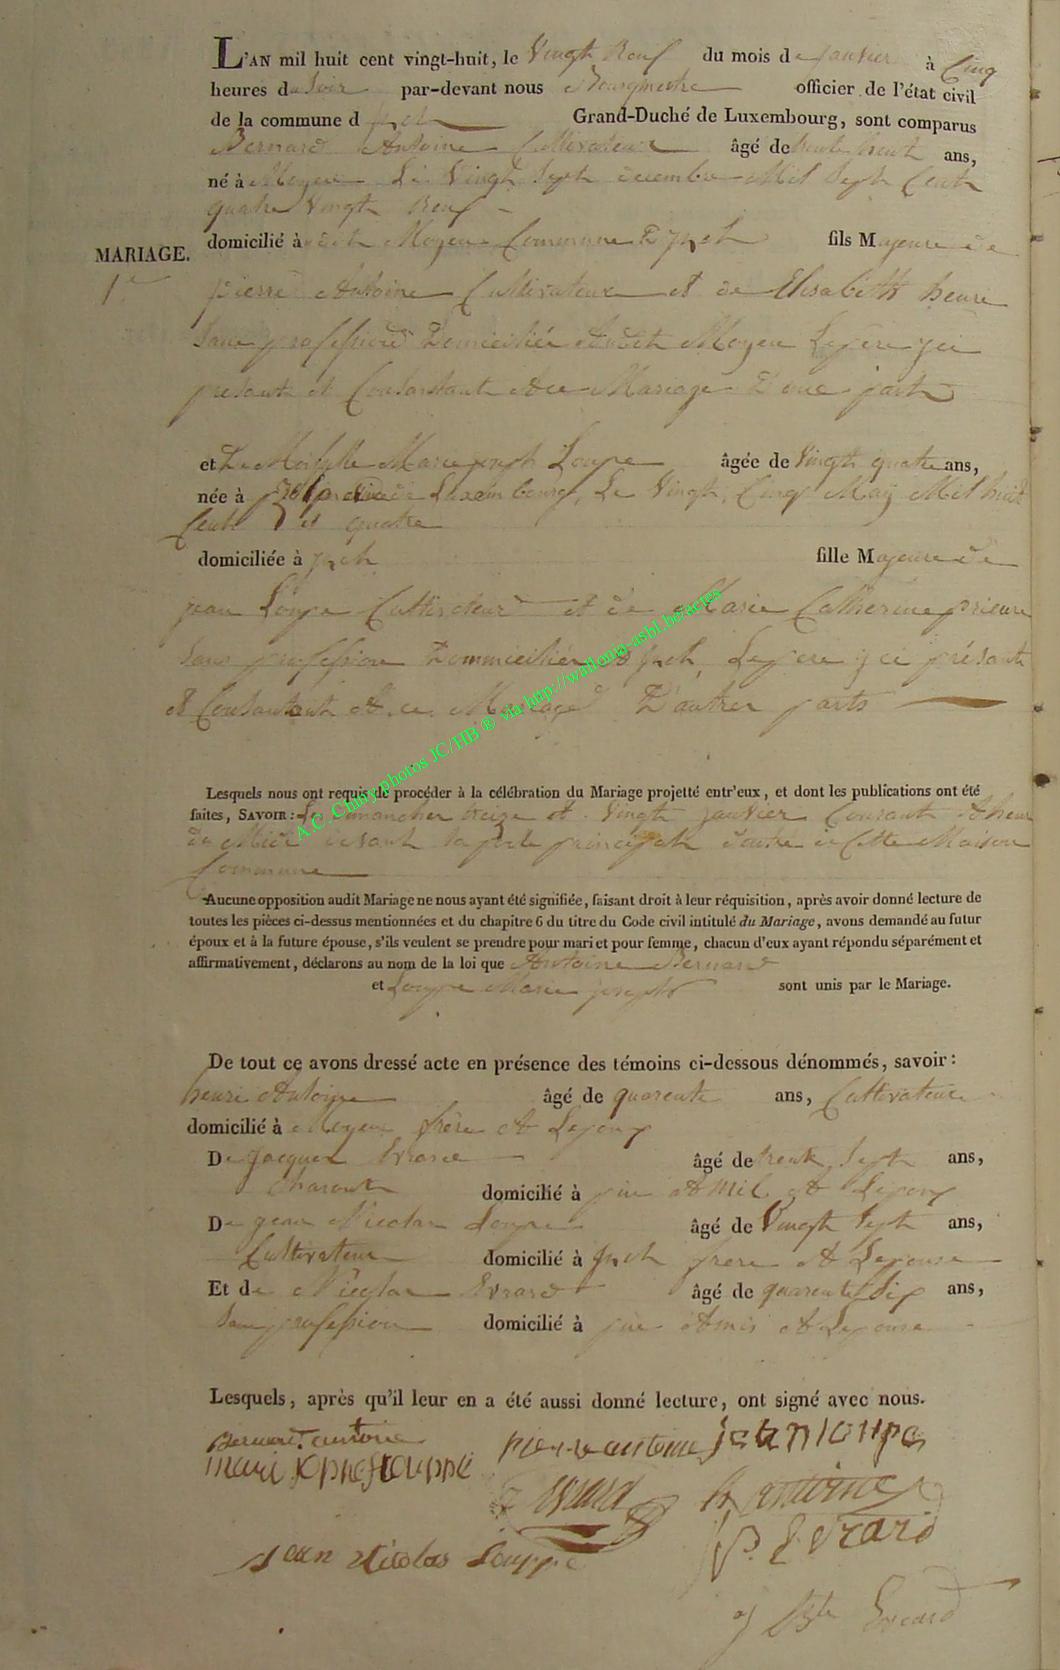 L'AN mil huit cent vingt-huit, le Vingt Neuf du mois de janvier à Cinq
heures du Soir par-devant nous Bourgmestre officier de l'état civil
de la commune d'jzel Grand-Duché de Luxembourg, sont comparus
Bernard Antoine Cultivateur âgé de trente huit ans,
né à Moyen Le Vingt Sept decembre Mil Sept Cent
quatre Vingt Neuf
domicilié à Moyen Commune D'jzel fils Majeure de
MARIAGE.
pierre Antoine Cultivateur et de Elisabeth henri
Sans profession Domiciliée Audit Moyen Le pere yci
présant et Consantant A ce Mariage D'une part
et De Moiselle Marie joseph Loupe âgée de Vingt quatre ans,
née à Luxembourg, Le Vingt Cinq May Mil huit
Cent et quatre
domiciliée à jzel fille Majeure de
jean Loupe Cultivateur et de Marie Catherine prieure
Sans profession Dommiciliée A jzel, Le pere yci présant
et Consantant A ce Mariage D'autres parts
Lesquels nous ont requis de procéder à la célébration du Mariage projetté entr'eux, et dont les publications ont été
faites, SAVOIR : Le dimancher treize et Vingt janvier Courant A heur
de Midi devant la porte principale de Cette Maison
Commune
Aucune opposition audit Mariage ne nous ayant été signifiée, faisant droit à leur réquisition, après avoir donné lecture de
toutes les pièces ci-dessus mentionnées et du chapitre 6 du titre du Code civil intitulé du Mariage, avons demandé au futur
époux et à la future épouse, s'ils veulent se prendre pour mari et pour femme, chacun d'eux ayant répondu séparément et
affirmativement, déclarons au nom de la loi que Antoine Bernard
et Loupe Marie joseph sont unis par le Mariage.
De tout ce avons dressé acte en présence des témoins ci-dessous dénommés, savoir :
henri Antoine âgé de quarente ans, Cultivateur
domicilié à Moyen frère A Lepoux
De jacques Evrard âgé de trente Sept ans,
domicilié à pin Amil A Lepoux
De jean Nicolas Loupe âgé de Vingt Sept ans,
Cultivateur domicilié à jzel frere A Lepouse
Et de Nicolas Evrard âgé de quarente Six ans,
Sans profession domicilié à pin Amis A Lepouse
Lesquels, après qu'il leur en a été aussi donné lecture, ont signé avec nous.
Bernard antoine pierre antoine jean loupe
Marie josephe Louppe
Evrard h antoine
N. Evrard
jean Nicolas Louppe
j Bte Evrard
A.C. Chiny photos JC/HB ® via http://wallonia-asbl.be/actes